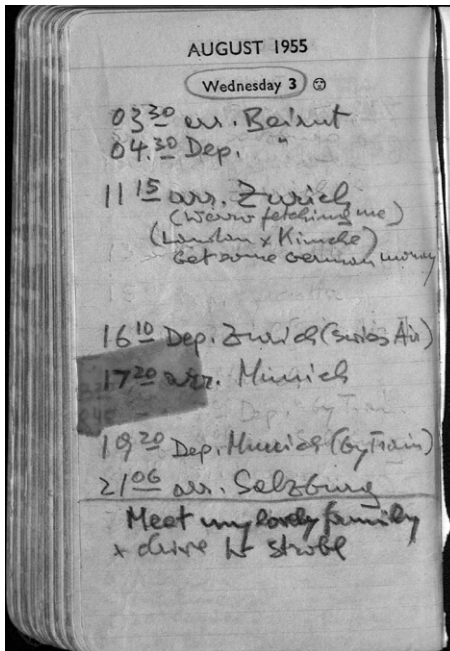 AUGUST 1955
Wednesday 3
03 30 arr. Beirut
04.30 Dep. "
11 15 arr. Zurich
(Werro fetching me)
(London + Kimche)
Get some German money
16 10 Dep. Zurich (Swiss Air)
17 20 arr. Munich
19 20 Dep. Munich (by Train)
21 06 arr. Salzburg
Meet my lovely family
+ drive to Strobl